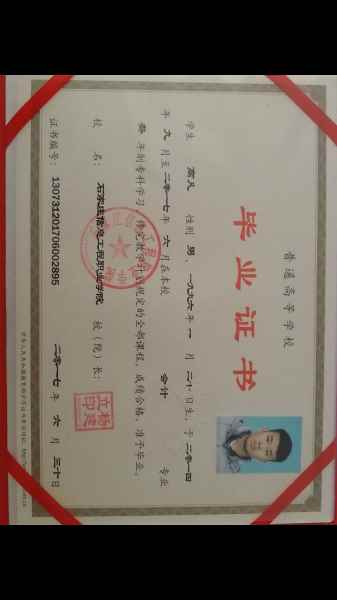 普通高等学校
毕业证书
学生 高凡 性别 男, 一九九六年 一 月 二十 日生, 于 二零一四
年 九 月至 二零一七 年 六 月在本校 会计 专业
叁 年制专科学习, 修完教学计划规定的全部课程, 成绩合格, 准予毕业。
校 名: 石家庄信息工程职业学院 校(院)长:
杨建立印
证书编号: 130731201706002895 二零一七 年 六 月 三十 日